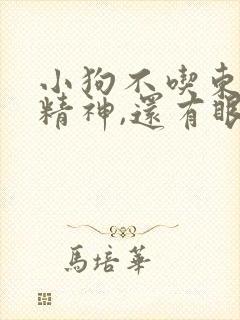 小狗不喫東
精神,還有眼
馬培華